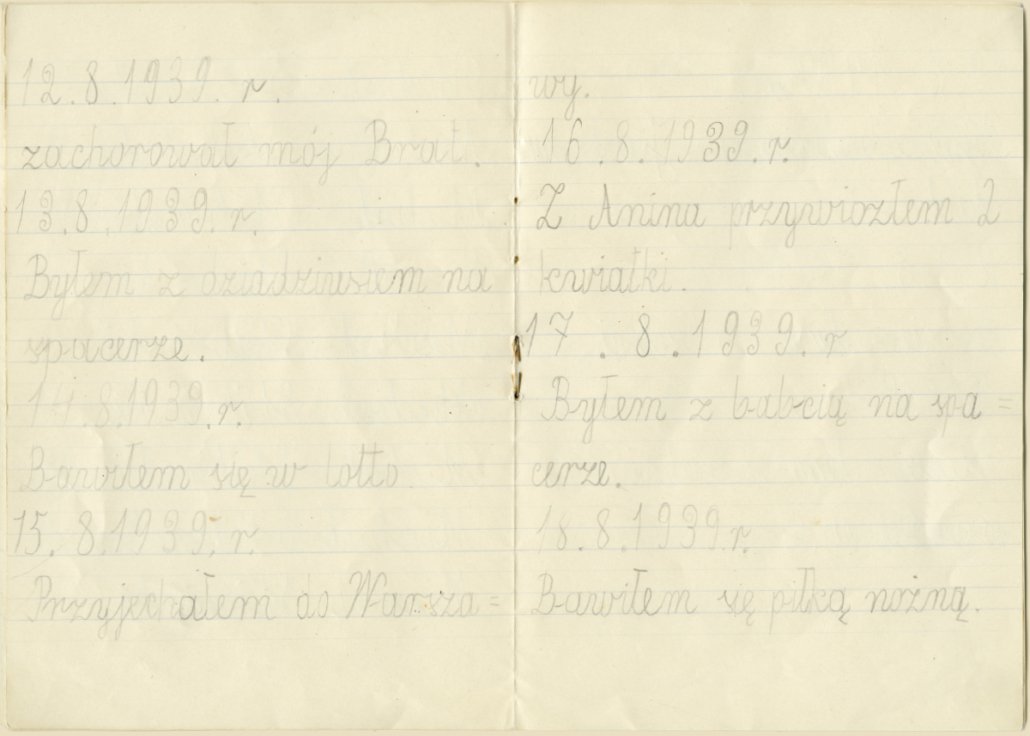 12.8.1939. r.
zachorował mój Brat.
13.8.1939. r.
Byłem z dziadziusiem na
spacerze.
14.8.1939. r.
Bawiłem się w lotto
15.8.1939. r.
Przyjechałem do Warsza=
wy.
16.8.1939. r.
Z Anina przywiozłem 2
kwiatki.
17.8.1939. r
Byłem z babcią na spa=
cerze.
18.8.1939 r.
Bawiłem się piłką nożną.